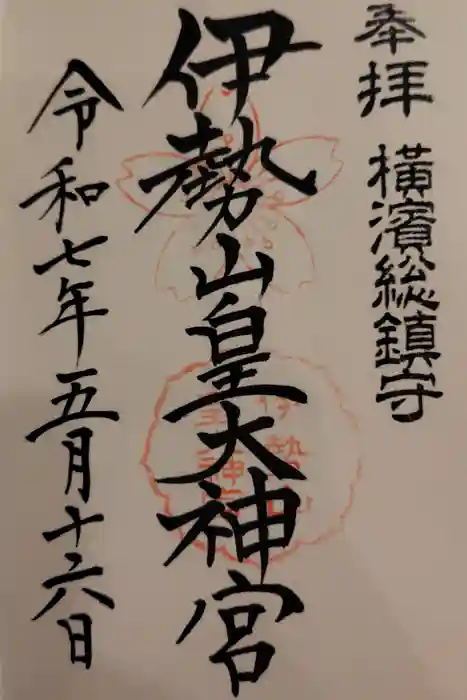 奉拝
横濱総鎮守
伊勢山皇大神宮
令和七年五月十六日